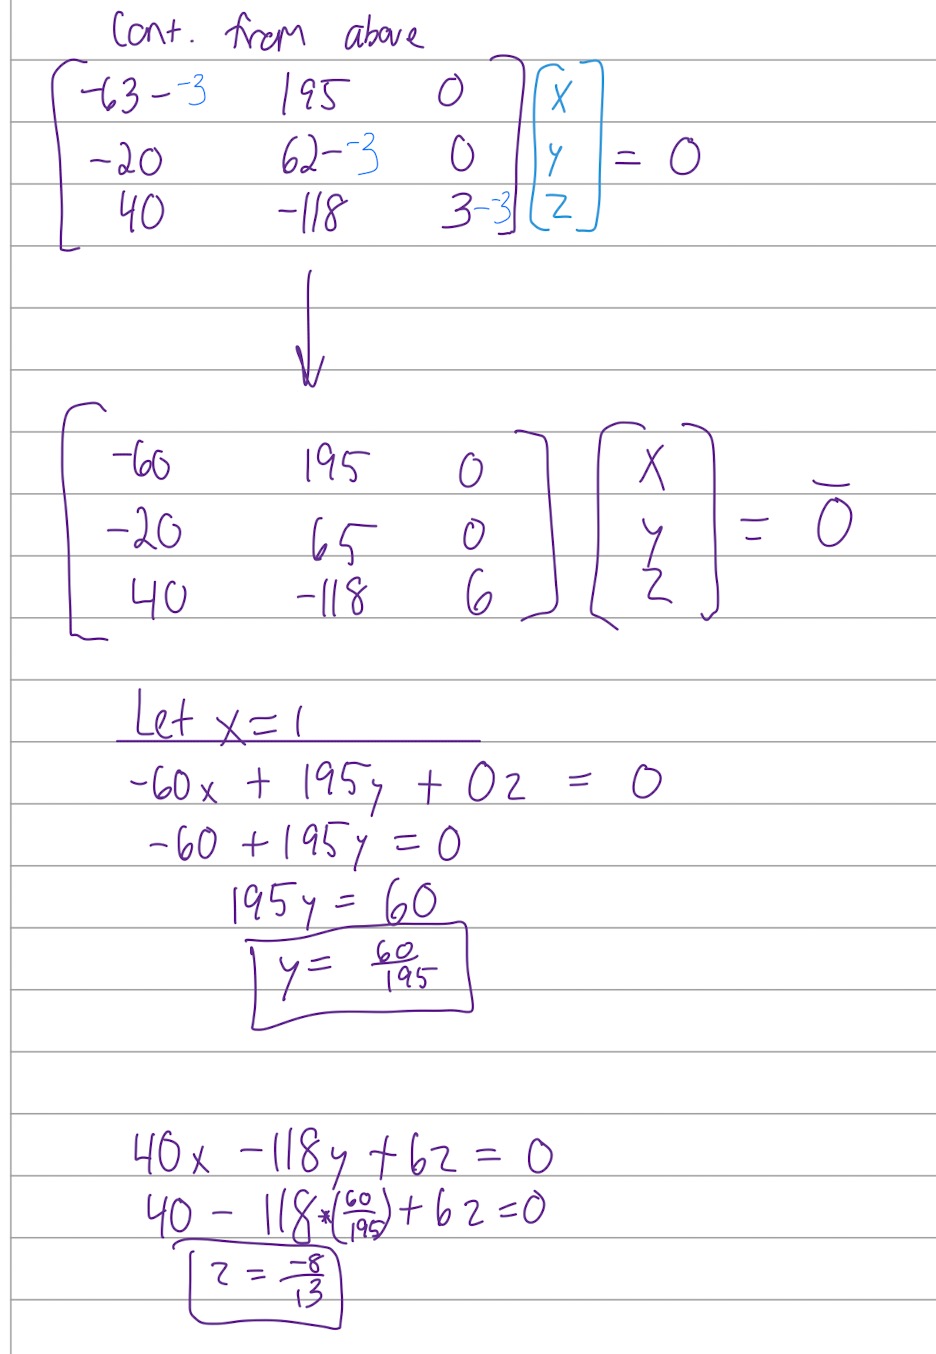 Cont. from above
[ -63 - -3 195 0 ] [ x ]
[ -20 62 - -3 0 ] [ y ] = 0
[ 40 -118 3 - -3 ] [ z ]
↓
[ -60 195 0 ] [ x ]
[ -20 65 0 ] [ y ] = 0̅
[ 40 -118 6 ] [ z ]
Let x = 1
-60x + 195y + 0z = 0
-60 + 195y = 0
195y = 60
y = 60/195
40x - 118y + 6z = 0
40 - 118*(60/195) + 6z = 0
z = -8/13